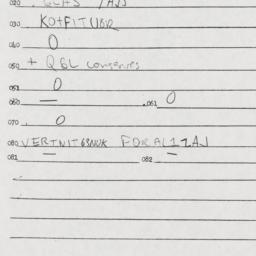 020
030 KOTFITUBR
040 0
050 + QBL companies
051 0
060 — .061 0
070 0
080 VERTNIT6SNUK FORAL1ZAJ
081 — 082 —